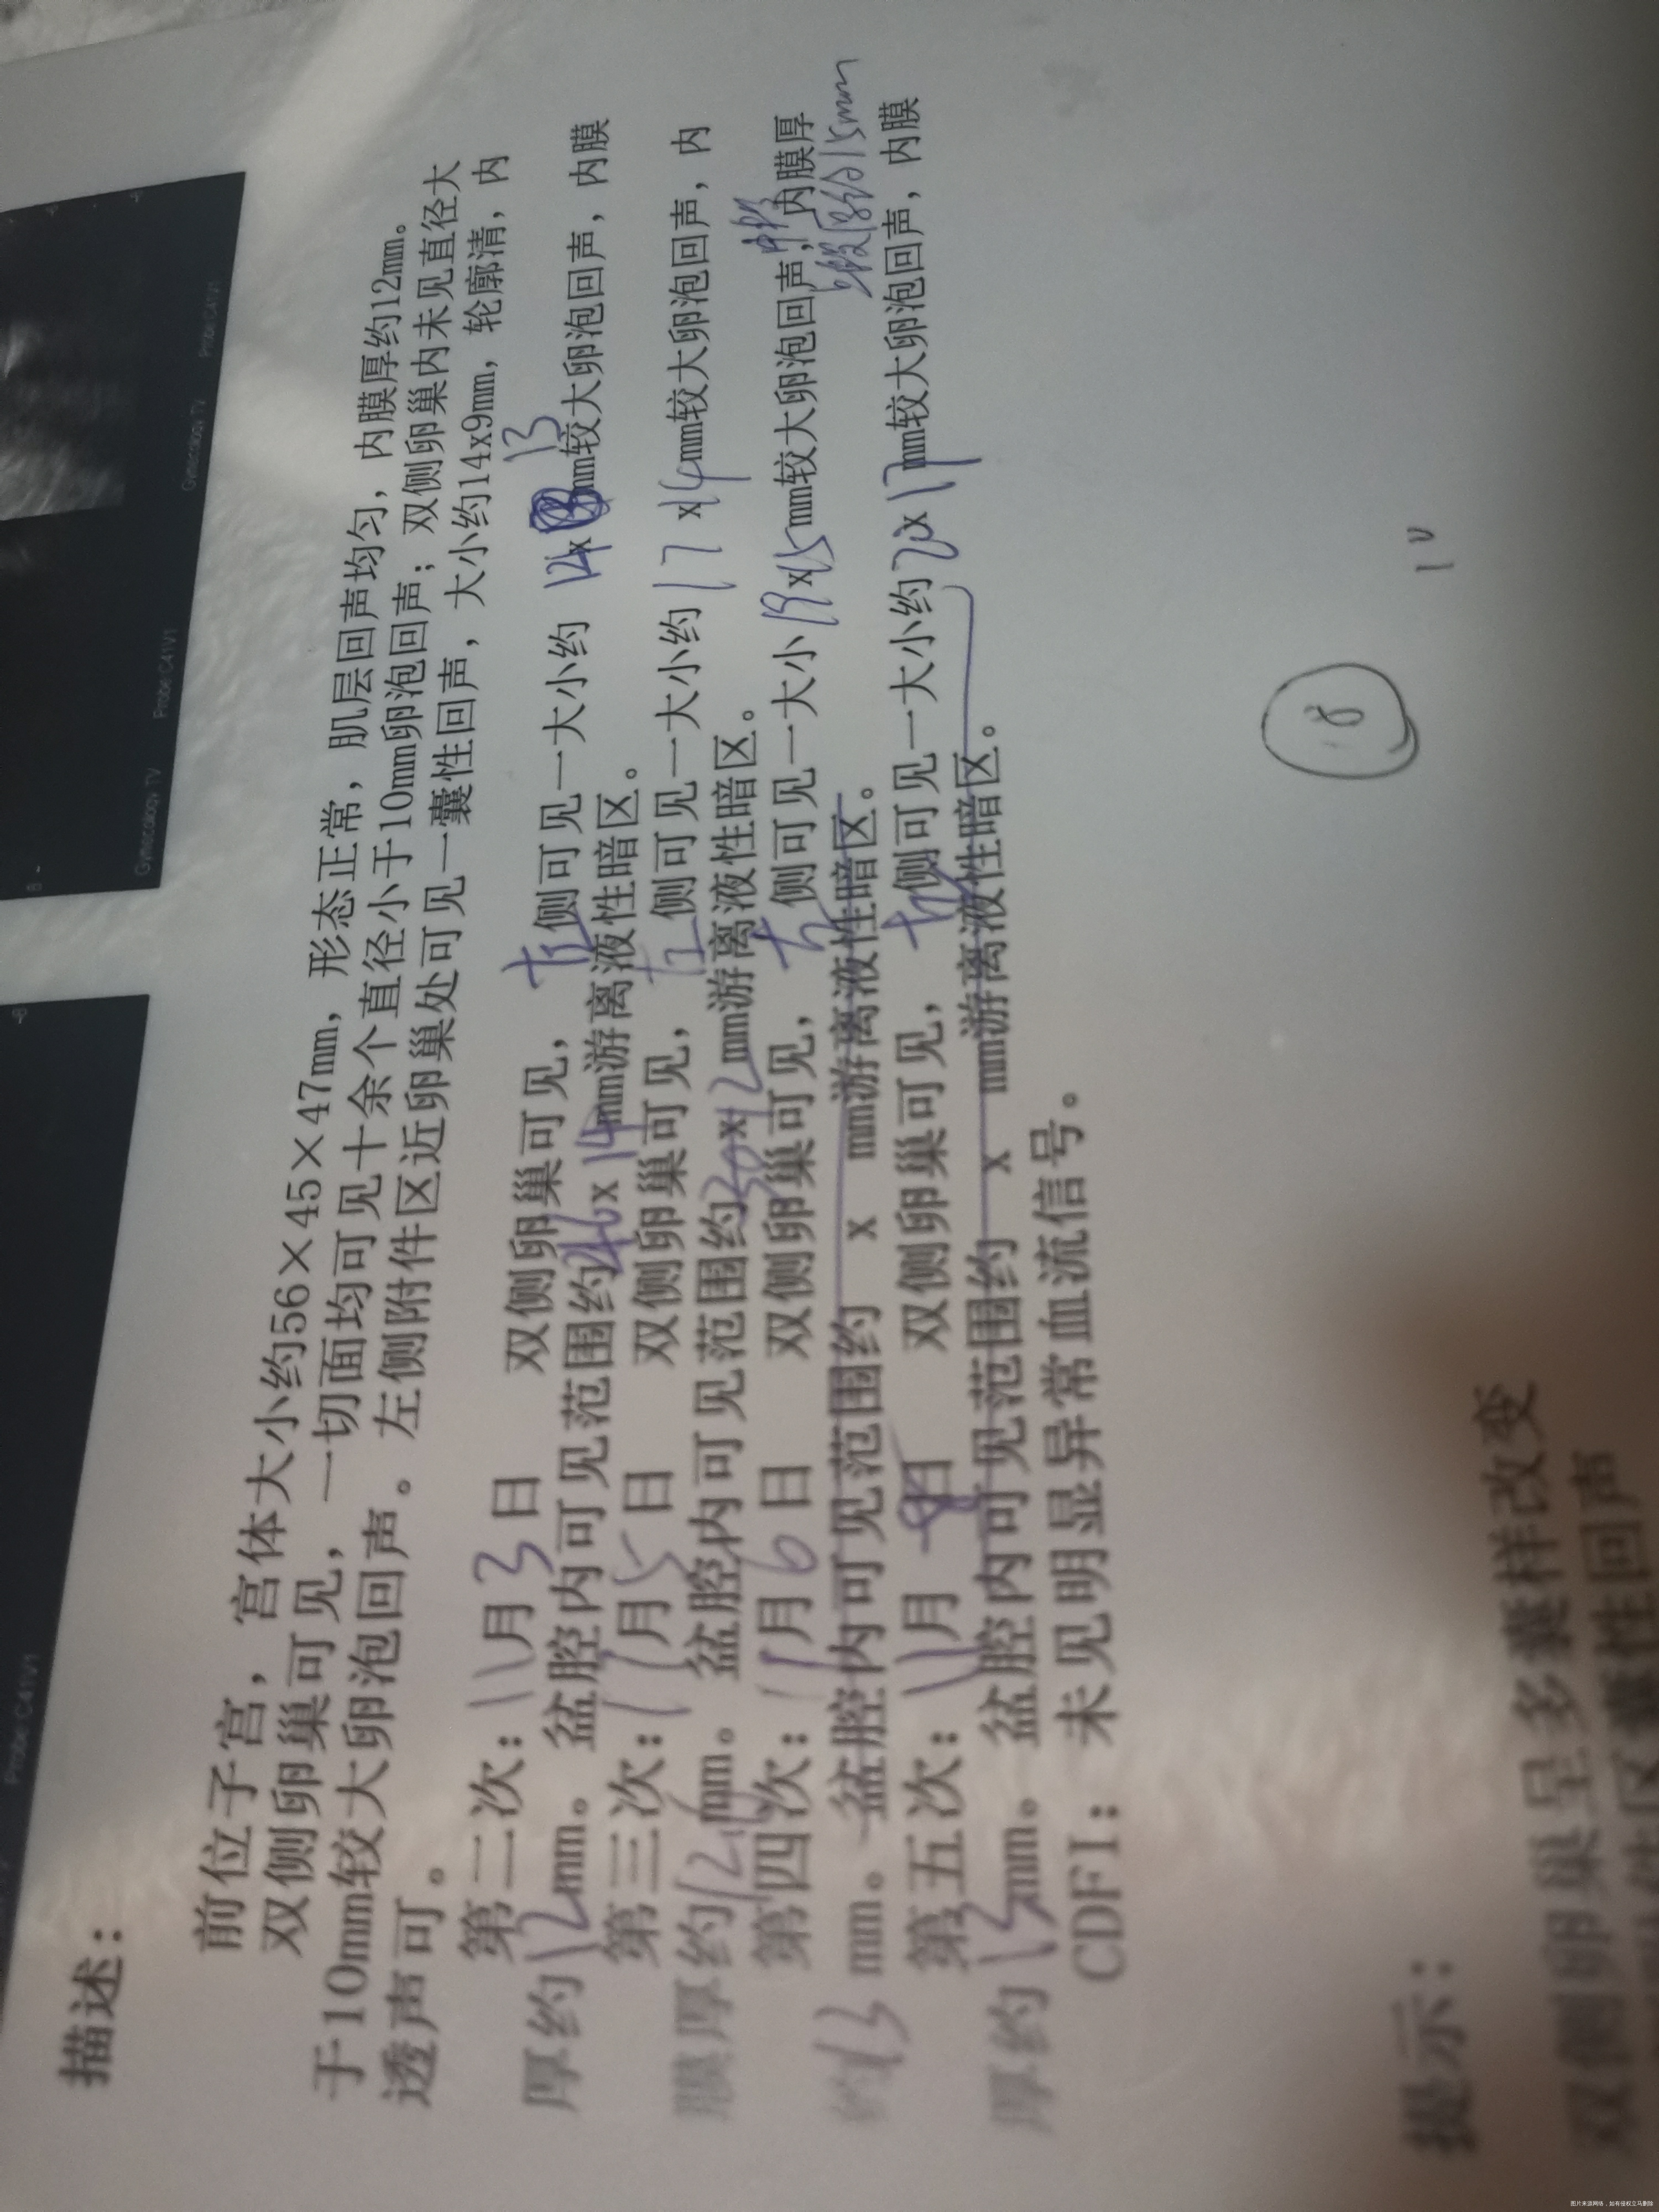 Probe C41V1
-6
8 -
Gynecology TV Probe C41V1
Gynecology TV Probe C41V1
描述：
前位子宫，宫体大小约56×45×47mm，形态正常，肌层回声均匀，内膜厚约12mm。
双侧卵巢可见，一切面均可见十余个直径小于10mm卵泡回声；双侧卵巢内未见直径大
于10mm较大卵泡回声。左侧附件区近卵巢处可见一囊性回声，大小约14x9mm，轮廓清，内
透声可。
第二次：11月3日 双侧卵巢可见，左侧可见一大小约 14x 13 mm较大卵泡回声，内膜
厚约12mm。 盆腔内可见范围约46x14mm游离液性暗区。
第三次：11月5日 双侧卵巢可见，左侧可见一大小约 17 x14mm较大卵泡回声，内
膜厚约12mm。 盆腔内可见范围约30x12mm游离液性暗区。
第四次：11月6日 双侧卵巢可见，左侧可见一大小19x15mm较大卵泡回声，内膜厚
约13mm。 盆腔内可见范围约 x mm游离液性暗区。
15mm
第五次：11月8日 双侧卵巢可见，左侧可见一大小约20x17mm较大卵泡回声，内膜
厚约13mm。 盆腔内可见范围约 x mm游离液性暗区。
CDFI：未见明显异常血流信号。
18
提示：
双侧卵巢呈多囊样改变
区囊性回声
图片来源网络，如有侵权立马删除